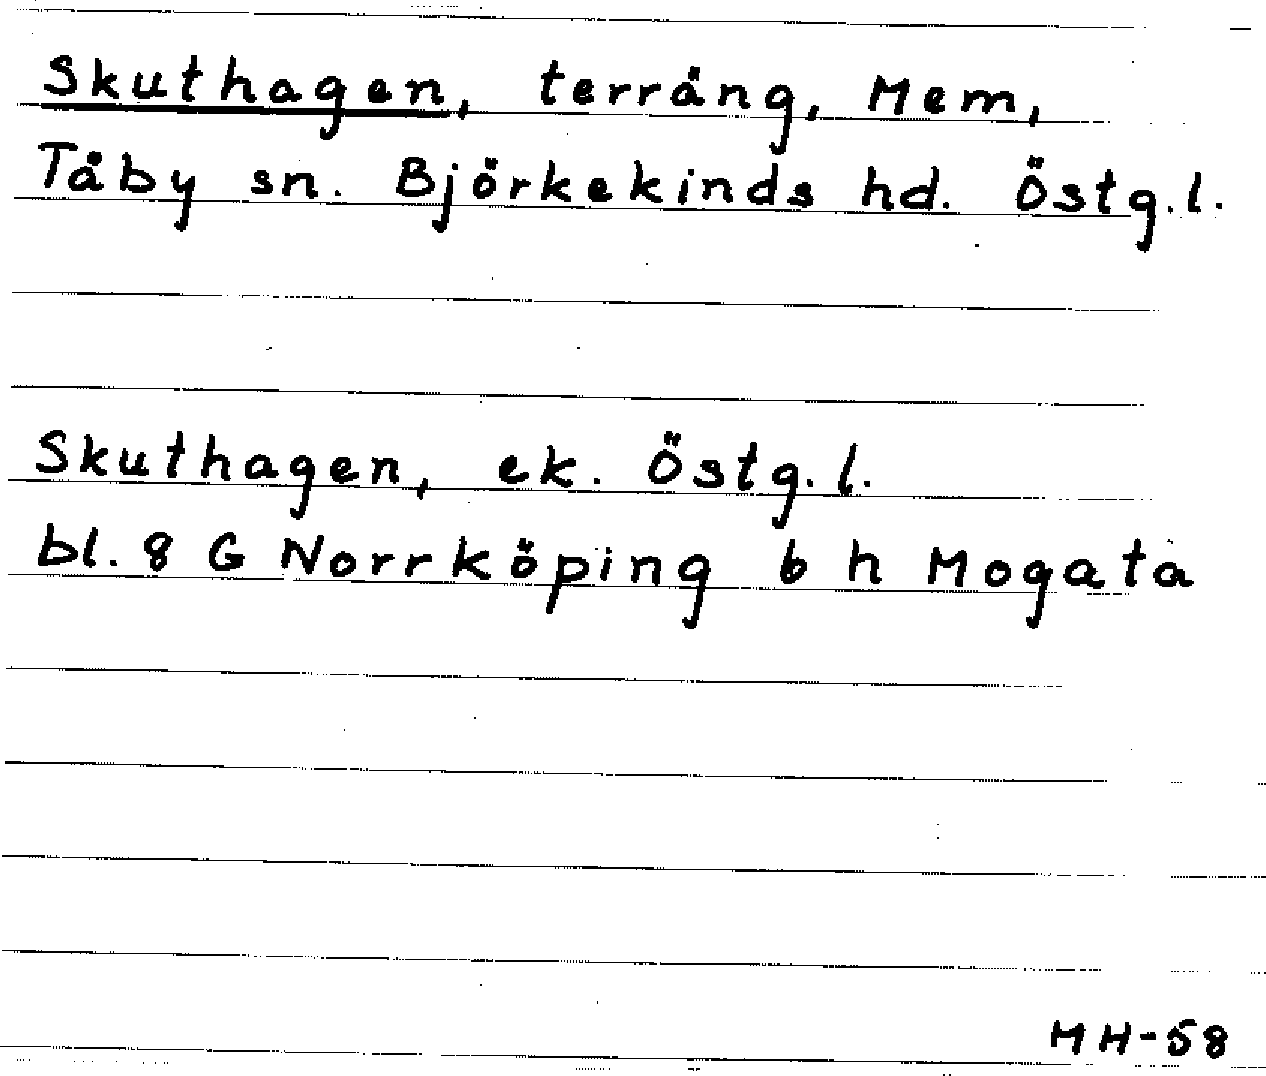 Skuthagen, terräng, Mem,
Tåby sn. Björkekinds hd. Östg.l.
Skuthagen, ek. Östg.l.
bl. 8 G Norrköping 6 h Mogata
MH-58